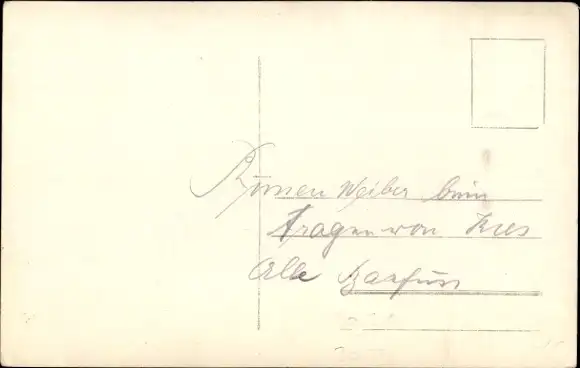 Rumen Weiber beim
tragen von Kies
Alle Barfuss